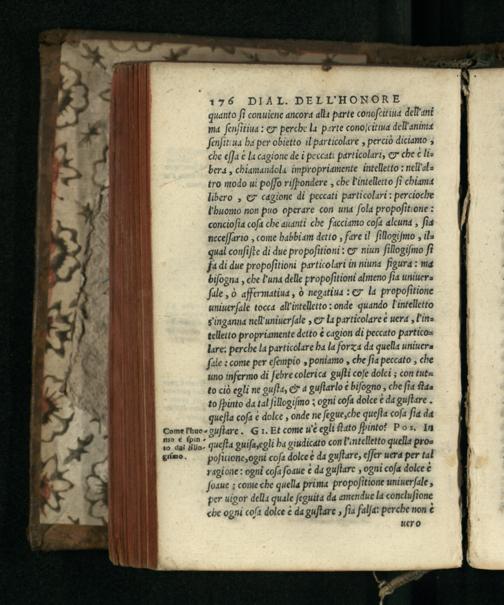 176 DIAL. DELL'HONORE
quanto si conuiene ancora alla parte conoscitiua dell'ani
ma sensitiua: & perche la parte conoscitiua dell'anima
sensitiua ha per obietto il particolare, perciò diciamo,
che essa è la cagione de i peccati particolari, & che è li-
bera, chiamandola impropriamente intelletto: nell'al-
tro modo ui posso rispondere, che l'intelletto si chiama
libero, & cagione di peccati particolari: percioche
l'huomo non puo operare con una sola propositione:
conciosia cosa che auanti che facciamo cosa alcuna, sia
necessario, come habbiam detto, fare il sillogismo, il-
qual consiste di due propositioni: & niun sillogismo si
fa di due propositioni particolari in niuna figura: ma
bisogna, che l'una delle propositioni almeno sia uniuer-
sale, ò affermatiua, ò negatiua: & la propositione
uniuersale tocca all'intelletto: onde quando l'intelletto
s'inganna nell'uniuersale, & la particolare è uera, l'in-
telletto propriamente detto è cagion di peccato partico-
lare: perche la particolare ha la forza da quella uniuer-
sale: come per esempio, poniamo, che sia peccato, che
uno infermo di febre colerica gusti cose dolci: con tut-
to ciò egli ne gusta, & a gustarlo è bisogno, che sia sta-
to spinto da tal sillogismo: ogni cosa dolce è da gustare.
questa cosa è dolce, onde ne segue, che questa cosa sia da
gustare. GI. Et come u'è egli stato spinto? POS. In
questa guisa, egli ha giudicato con l'intelletto quella pro-
positione, ogni cosa dolce è da gustare, esser uera per tal
ragione: ogni cosa soaue è da gustare, ogni cosa dolce è
soaue: come che quella prima propositione uniuersale,
per uigor della quale seguita da amendue la conclusione
che ogni cosa dolce è da gustare, sia falsa: perche non è
uero
Come l'huo-
mo è spin-
to dal sillo-
gismo.